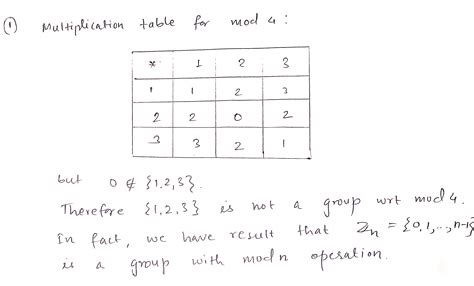 ① Multiplication table for mod 4 :
* 1 2 3
1 1 2 3
2 2 0 2
3 3 2 1
but 0 ∉ {1,2,3}.
Therefore {1,2,3} is not a group wrt mod 4.
In fact, we have result that Zn = {0,1,..,n-1}
is a group with mod n operation.